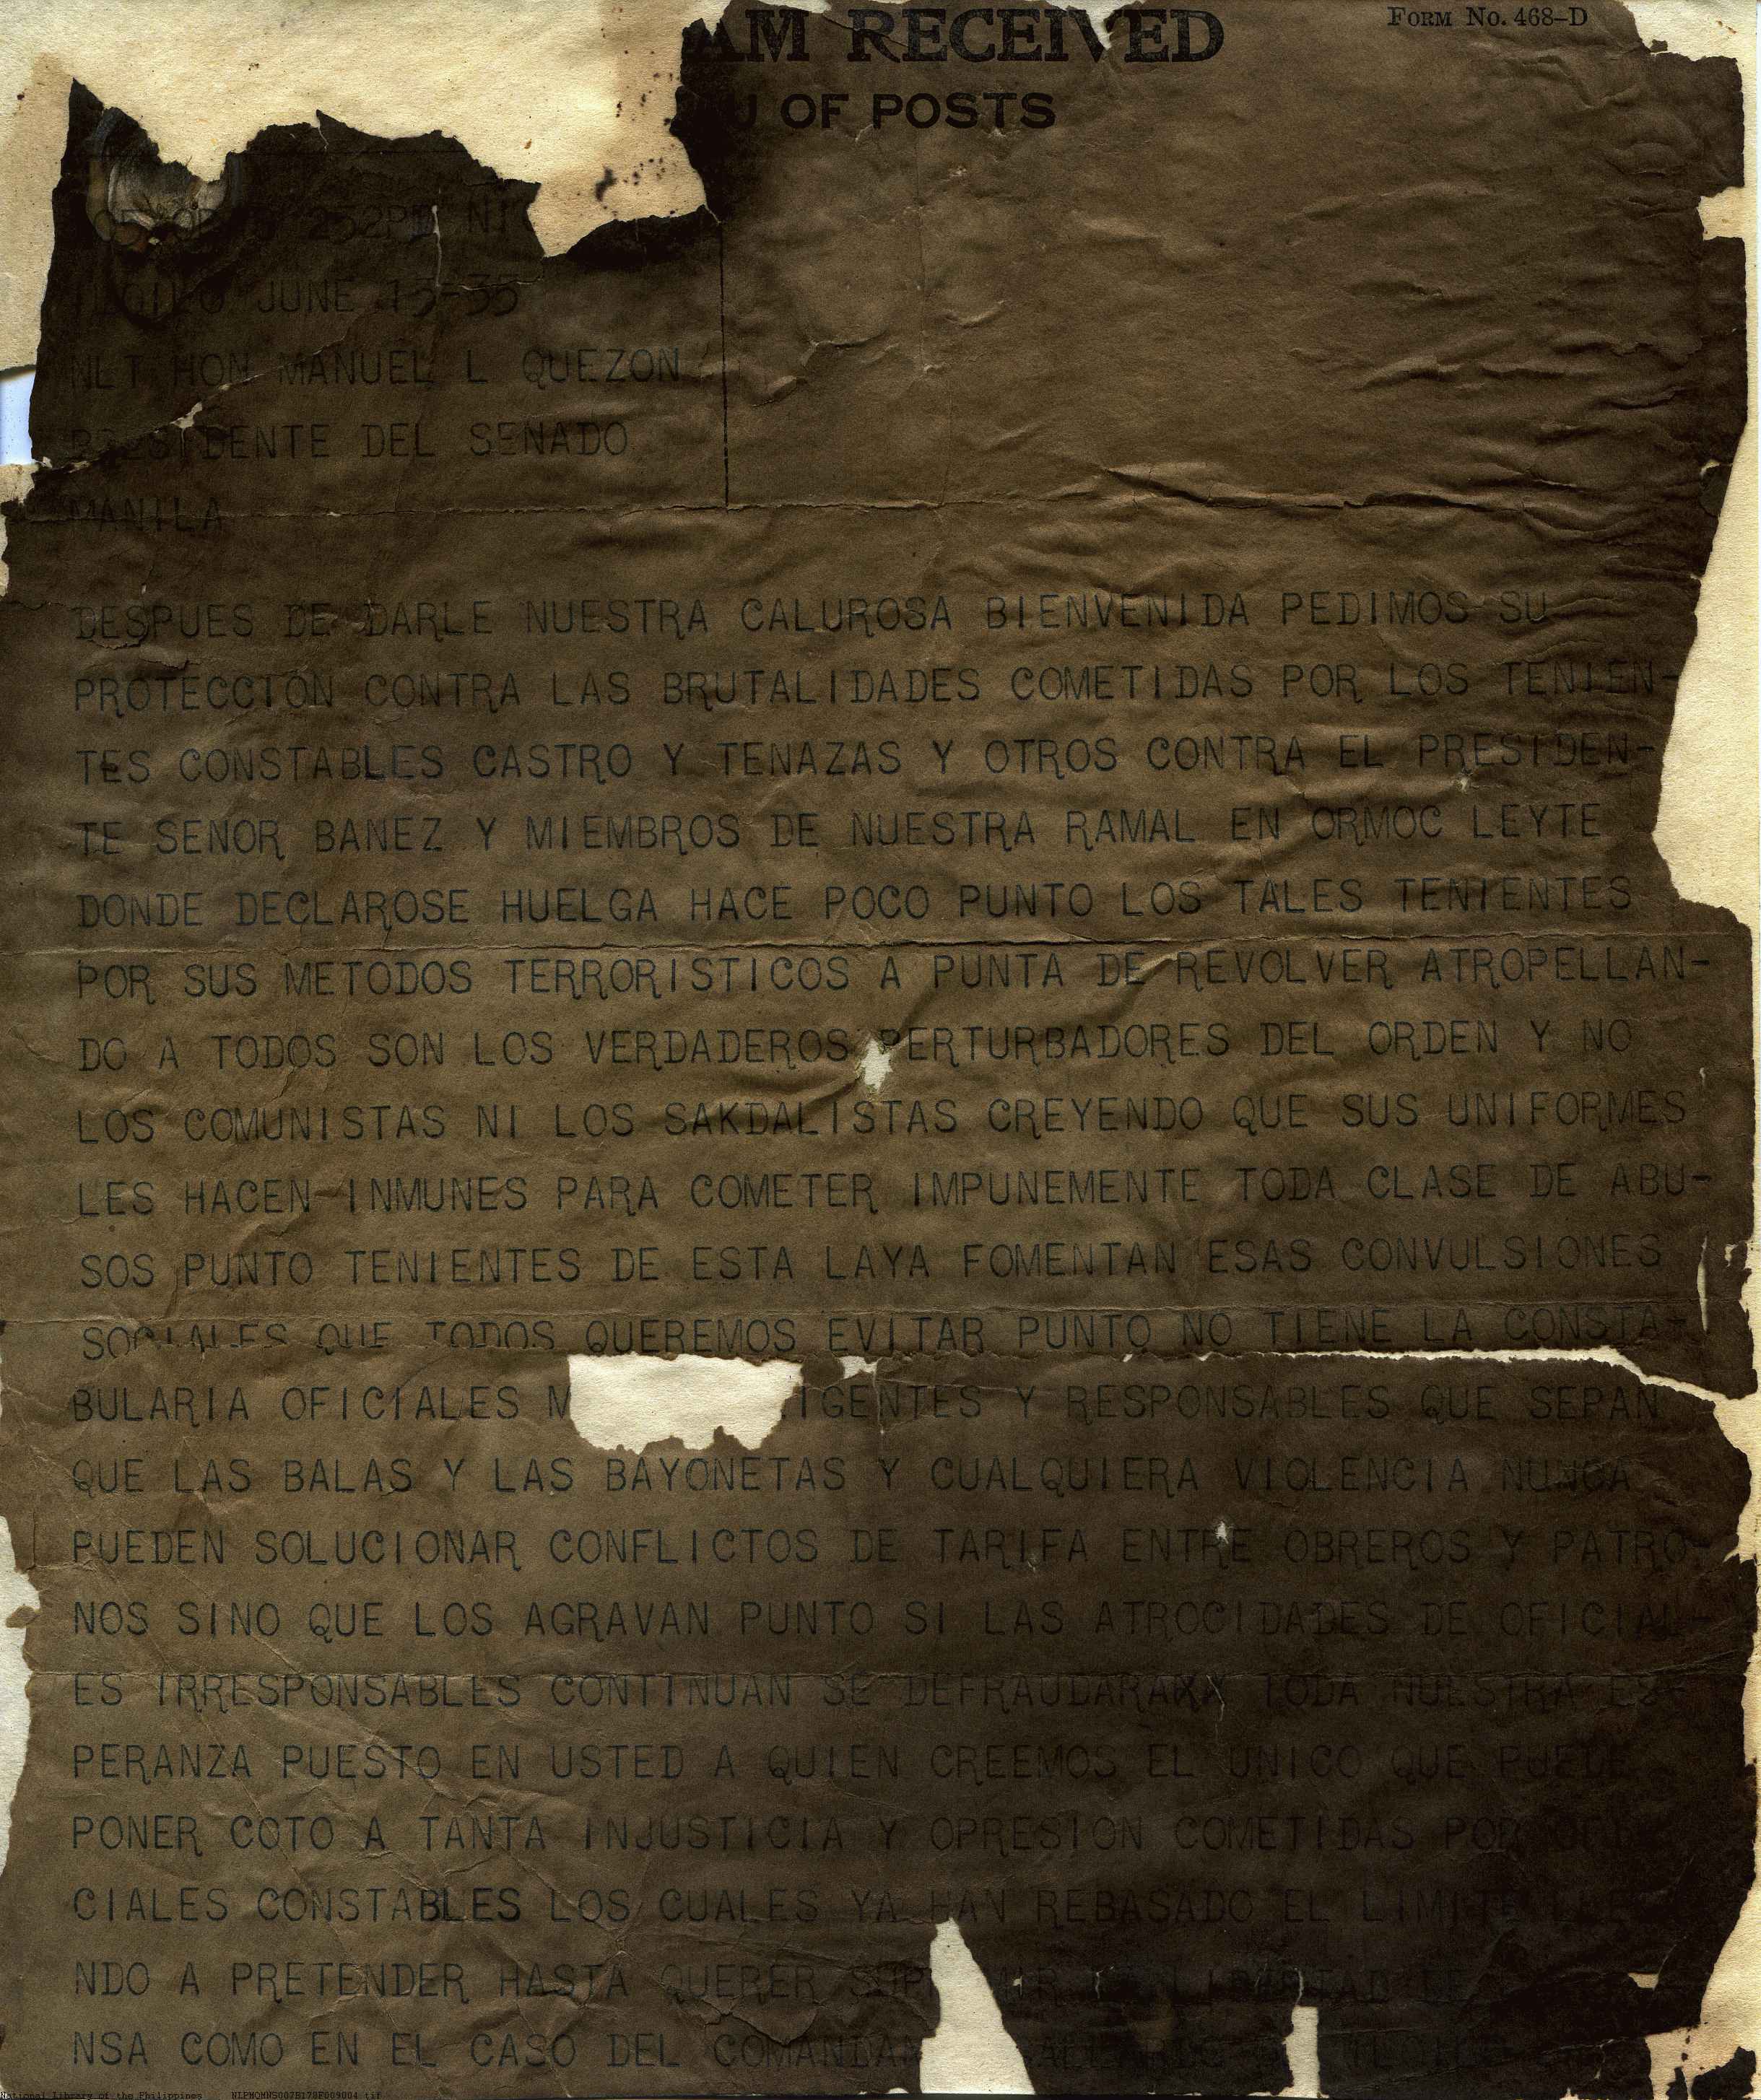 AM RECEIVED
FORM NO. 468-D
U OF POSTS
252PM
ILOILO JUNE 13-35
NLT HON MANUEL L QUEZON
PRESIDENTE DEL SENADO
MANILA
DESPUES DE DARLE NUESTRA CALUROSA BIENVENIDA PEDIMOS SU
PROTECCION CONTRA LAS BRUTALIDADES COMETIDAS POR LOS TENIEN-
TES CONSTABLES CASTRO Y TENAZAS Y OTROS CONTRA EL PRESIDEN-
TE SENOR BANEZ Y MIEMBROS DE NUESTRA RAMAL EN ORMOC LEYTE
DONDE DECLAROSE HUELGA HACE POCO PUNTO LOS TALES TENIENTES
POR SUS METODOS TERRORISTICOS A PUNTA DE REVOLVER ATROPELLAN-
DO A TODOS SON LOS VERDADEROS PERTURBADORES DEL ORDEN Y NO
LOS COMUNISTAS NI LOS SAKDALISTAS CREYENDO QUE SUS UNIFORMES
LES HACEN INMUNES PARA COMETER IMPUNEMENTE TODA CLASE DE ABU-
SOS PUNTO TENIENTES DE ESTA LAYA FOMENTAN ESAS CONVULSIONES
SOCIALES QUE TODOS QUEREMOS EVITAR PUNTO NO TIENE LA CONSTA-
BULARIA OFICIALES M IGENTES Y RESPONSABLES QUE SEPAN
QUE LAS BALAS Y LAS BAYONETAS Y CUALQUIERA VIOLENCIA NUNCA
PUEDEN SOLUCIONAR CONFLICTOS DE TARIFA ENTRE OBREROS Y PATRO-
NOS SINO QUE LOS AGRAVAN PUNTO SI LAS ATROCIDADES DE OFICIAL-
ES IRRESPONSABLES CONTINUAN SE DEFRAUDARAXX TODA NUESTRA ES-
PERANZA PUESTO EN USTED A QUIEN CREEMOS EL UNICO QUE PUEDE
PONER COTO A TANTA INJUSTICIA Y OPRESION COMETIDAS POR OFI
CIALES CONSTABLES LOS CUALES YA HAN REBASADO EL LIMITE
NDO A PRETENDER HASTA QUERER SUP LIBERTAD DE
NSA COMO EN EL CASO DEL COMANDAN
National Library of the Philippines NLPMQMNS007B178F009004.tif